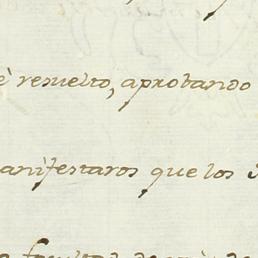 è resuelto, aprobando
anifestaros que los